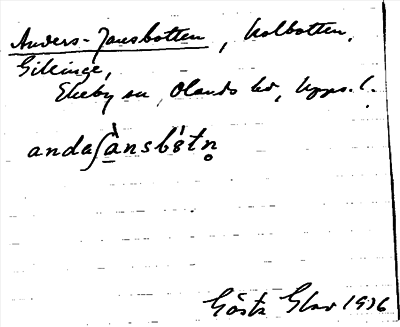 Anders-Jansbotten, kolbotten,
Gillinge,
Ekeby sn, Olands hd, Upps. l.
andaʃànsbòtn̥
Gösta 1936